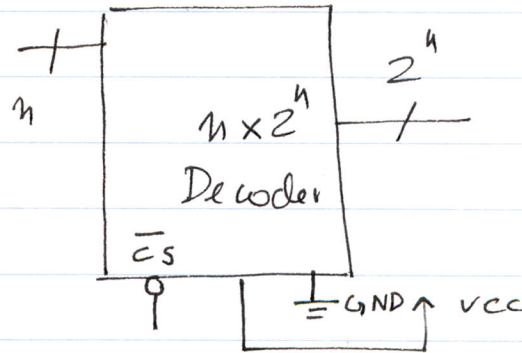 n
2ⁿ
n x 2ⁿ
Decoder
C̅S̅
GND VCC